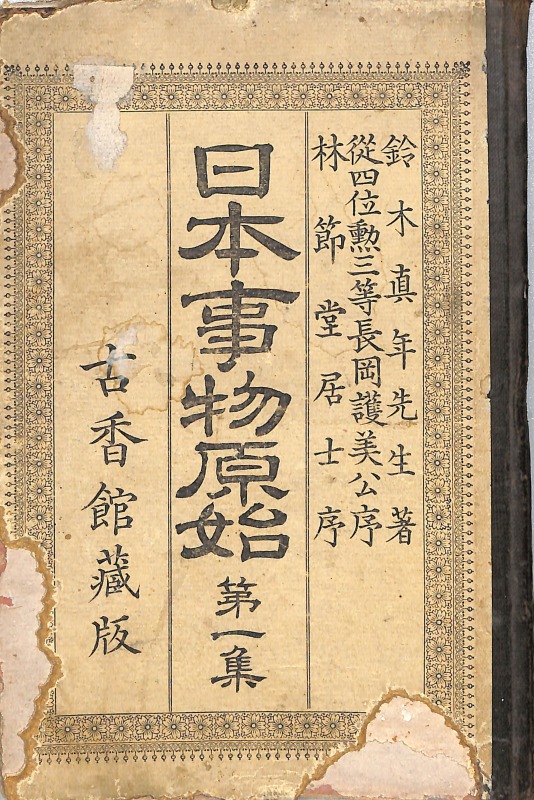 鈴木真年先生著
從四位勲三等長岡護美公序
林節堂居士序
日本事物原始 第一集
古香館藏版